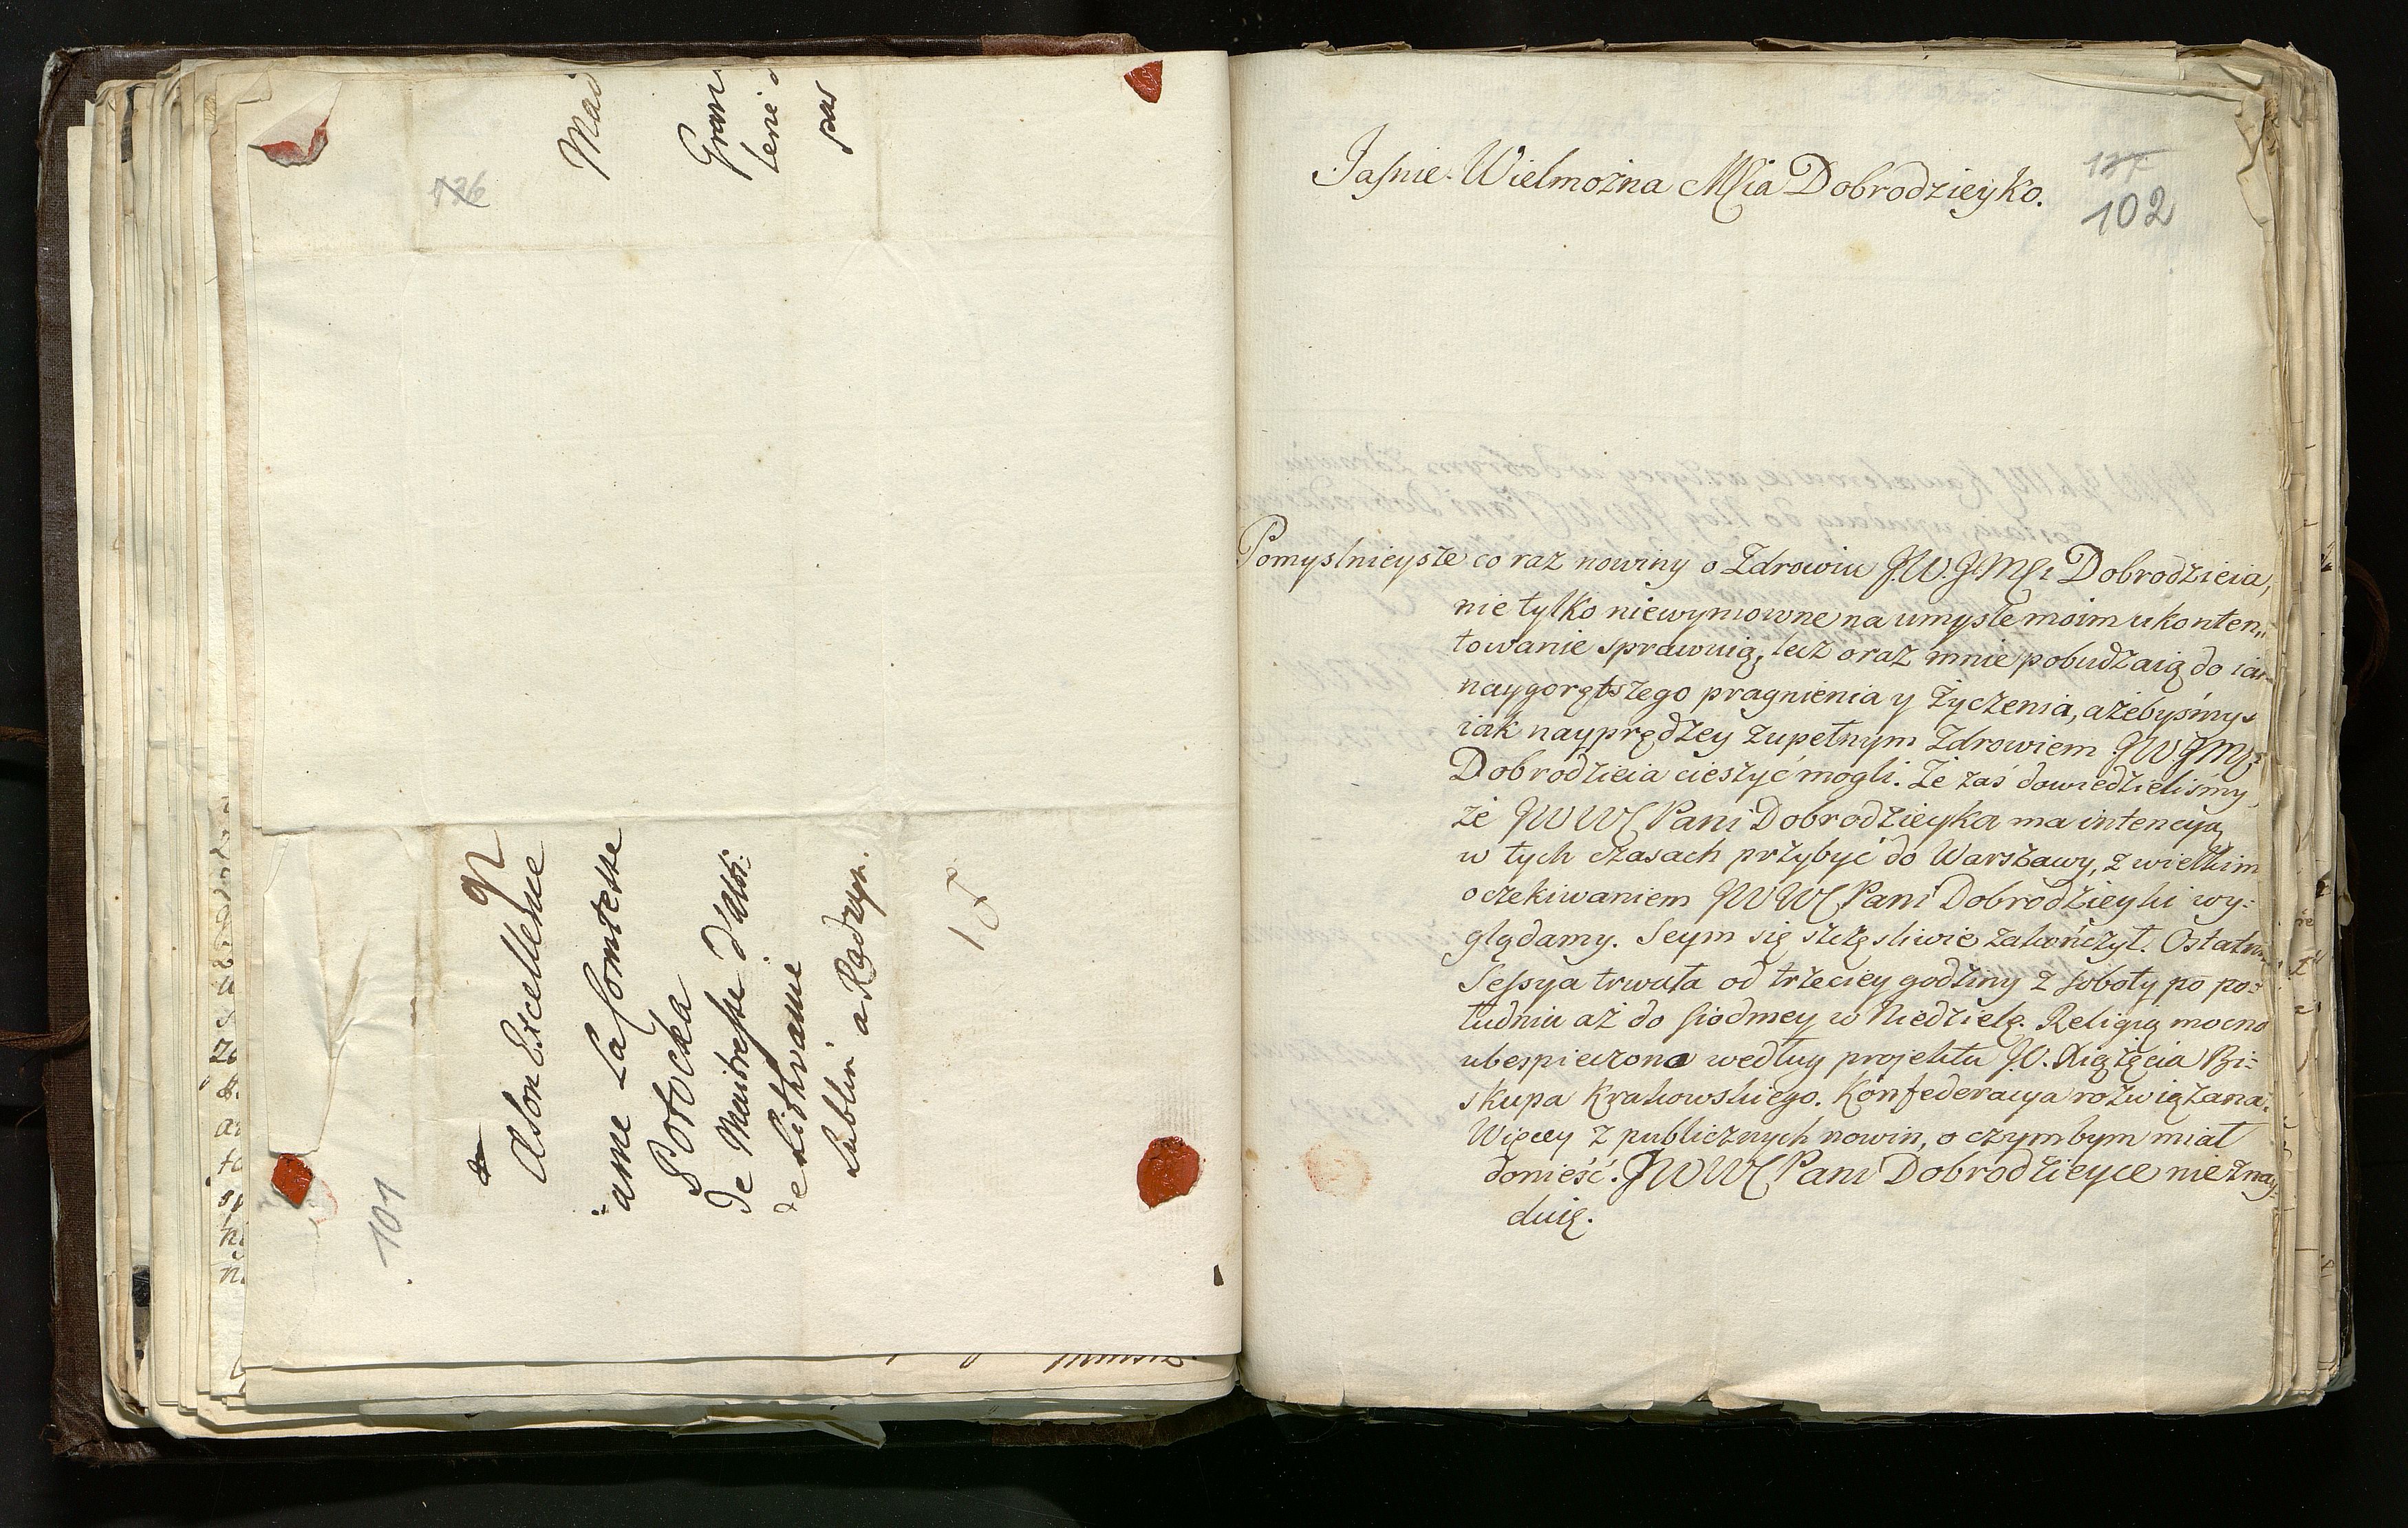 126
Mad
Gran
terie d
par
A Son Excellence
ame La Comtesse
Potocka
de Maitresse d'Arti:
de Lithvanie
Lublin. a Radzyn.
101
18
Jaśnie Wielmożna Mścia Dobrodzieyko.
127
102
Pomyslnieysze co raz nowiny o Zdrowiu JW. JMści Dobrodzieia,
nie tylko niewymowne na umysle moim ukonten„
towanie sprawuią, lecz oraz mnie pobudzaią do iak
naygorętszego pragnienia y życzenia, ażebyśmy
iak nayprędzey zupełnym Zdrowiem JW. JMści
Dobrodzieia cieszyć mogli. Że zaś dowiedzieliśmy,
że JWWC Pani Dobrodzieyka ma intencyą
w tych czasach przybyć do Warszawy, z wielkim
oczekiwaniem JWWC Pani Dobrodzieyki wy:
glądamy. Seym się szczęsliwie zakończył. Ostatnia
Sessya trwała od trzeciey godziny z soboty po po:
łudniu aż do siodmey w Niedzielę. Religią mocno
ubespieczono według projektu JO. Xiążęcia Bi:
skupa Krakowskiego. Konfederacya rozwiązana.
Więcey z publicznych nowin, o czym bym miał
donieść JWWC Pani Dobrodzieyce nie znay:
duię.